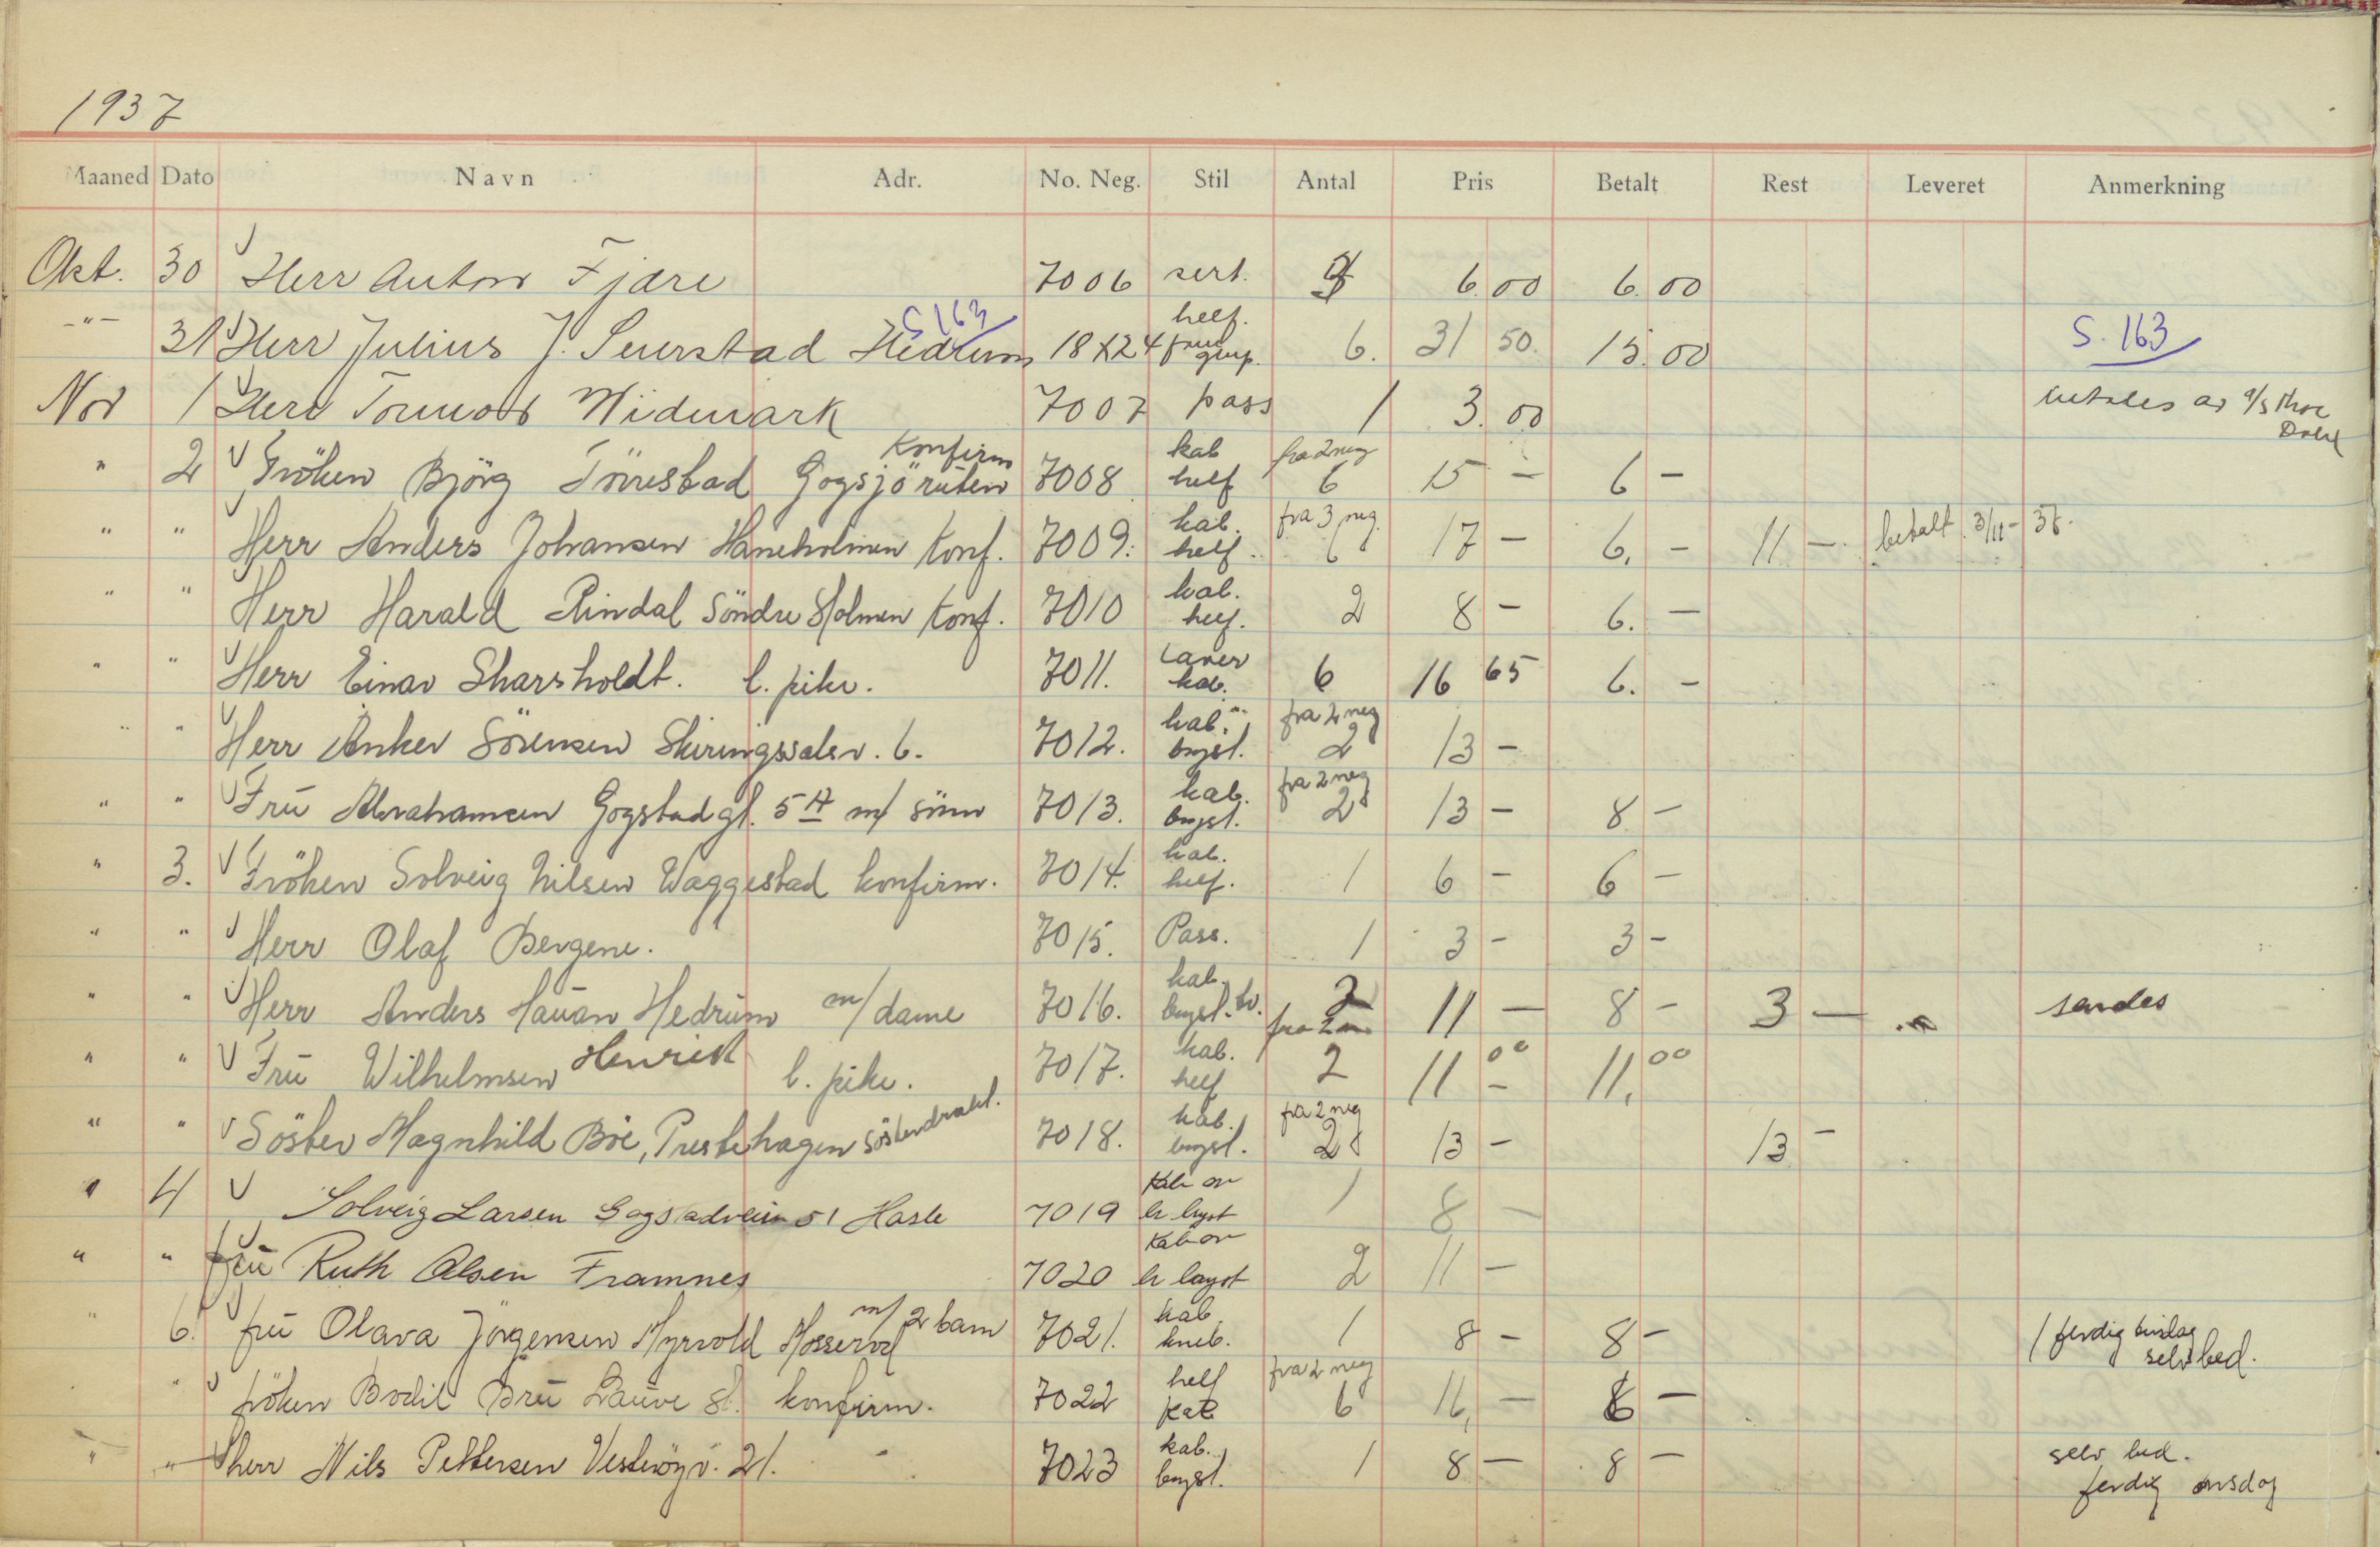 1937
Maaned Dato Navn Adr. No. Neg. Stil Antal Pris Betalt Rest Leveret Anmerkning
Okt. 30 Herr Anton Fjære 7006 sert. 6.00 6.00
-"- 31 Herr Julius J. Seierstad Hedrum S 163 18x24 helf. grup. 6. 31 50. 15.00 S. 163
Nov 1 Herr Tormod Widmark 7007 pass 1 3.00 betales av a/s Thor Dahl
" 2 Fröken Björg Törrestad Gogsjöruten Konfirm 7008 kab helf fra 2 neg 6 15 - 6 -
" " Herr Anders Johansen Haneholmen Konf. 7009. kab. helf. fra 3 neg. 6 17 - 6. - 11 - betalt 3/11 - 37.
" " Herr Harald Rindal Söndre Holmen Konf. 7010 kab. helf. 2 8 - 6. -
" " Herr Einar Skarsholdt. l. pike. 7011. kab. 6 16 65 6. -
" " Herr Anker Sörensen Skiringssalsv. 6. 7012. kab. bryst. fra 2 neg 2 13 -
" " Frü Abrahamsen Gogstadgt. 5 A m/ sünn 7013. kab. bryst. fra 2 neg 2 13 - 8 -
" 3. Fröken Solveig Nilsen Waggestad konfirm. 7014. kab. helf. 1 6 - 6 -
" " Herr Olaf Bergene. 7015. Pass. 1 3 - 3 -
" " Herr Anders Haüan Hedrüm m/dame 7016. kab. bryst. 2 11 - 8 - 3 - sendes
" " Frü Wilhelmsen Henrik l. pike. 7017. kab. helf 2 11 00 - 11,00
" " Söster Magnhild Böe, Prestehagen Sösterdrakt. 7018. kab. bryst. fra 2 neg 2 13 - 13 -
" 4 Solveig Larsen 51 Hasle 7019 1 8 -
" " frü Ruth Olsen Framnes 7020 2 11 -
" 6. frü Olava Jörgensen Myrvold Mosserød m/ 2 barn 7021. kab. kneb. 1 8 - 8 - 1 ferdig tirsdag selv bed.
" fröken Bodil Brü Laüve gt. konfirm. 7022 helf kab fra 2 neg 6 11, - 6 -
" " herr Nils Pettersen Vesteröyv. 21. 7023 kab. bryst. 1 8 - 8 - selv bed.
ferdig onsdag